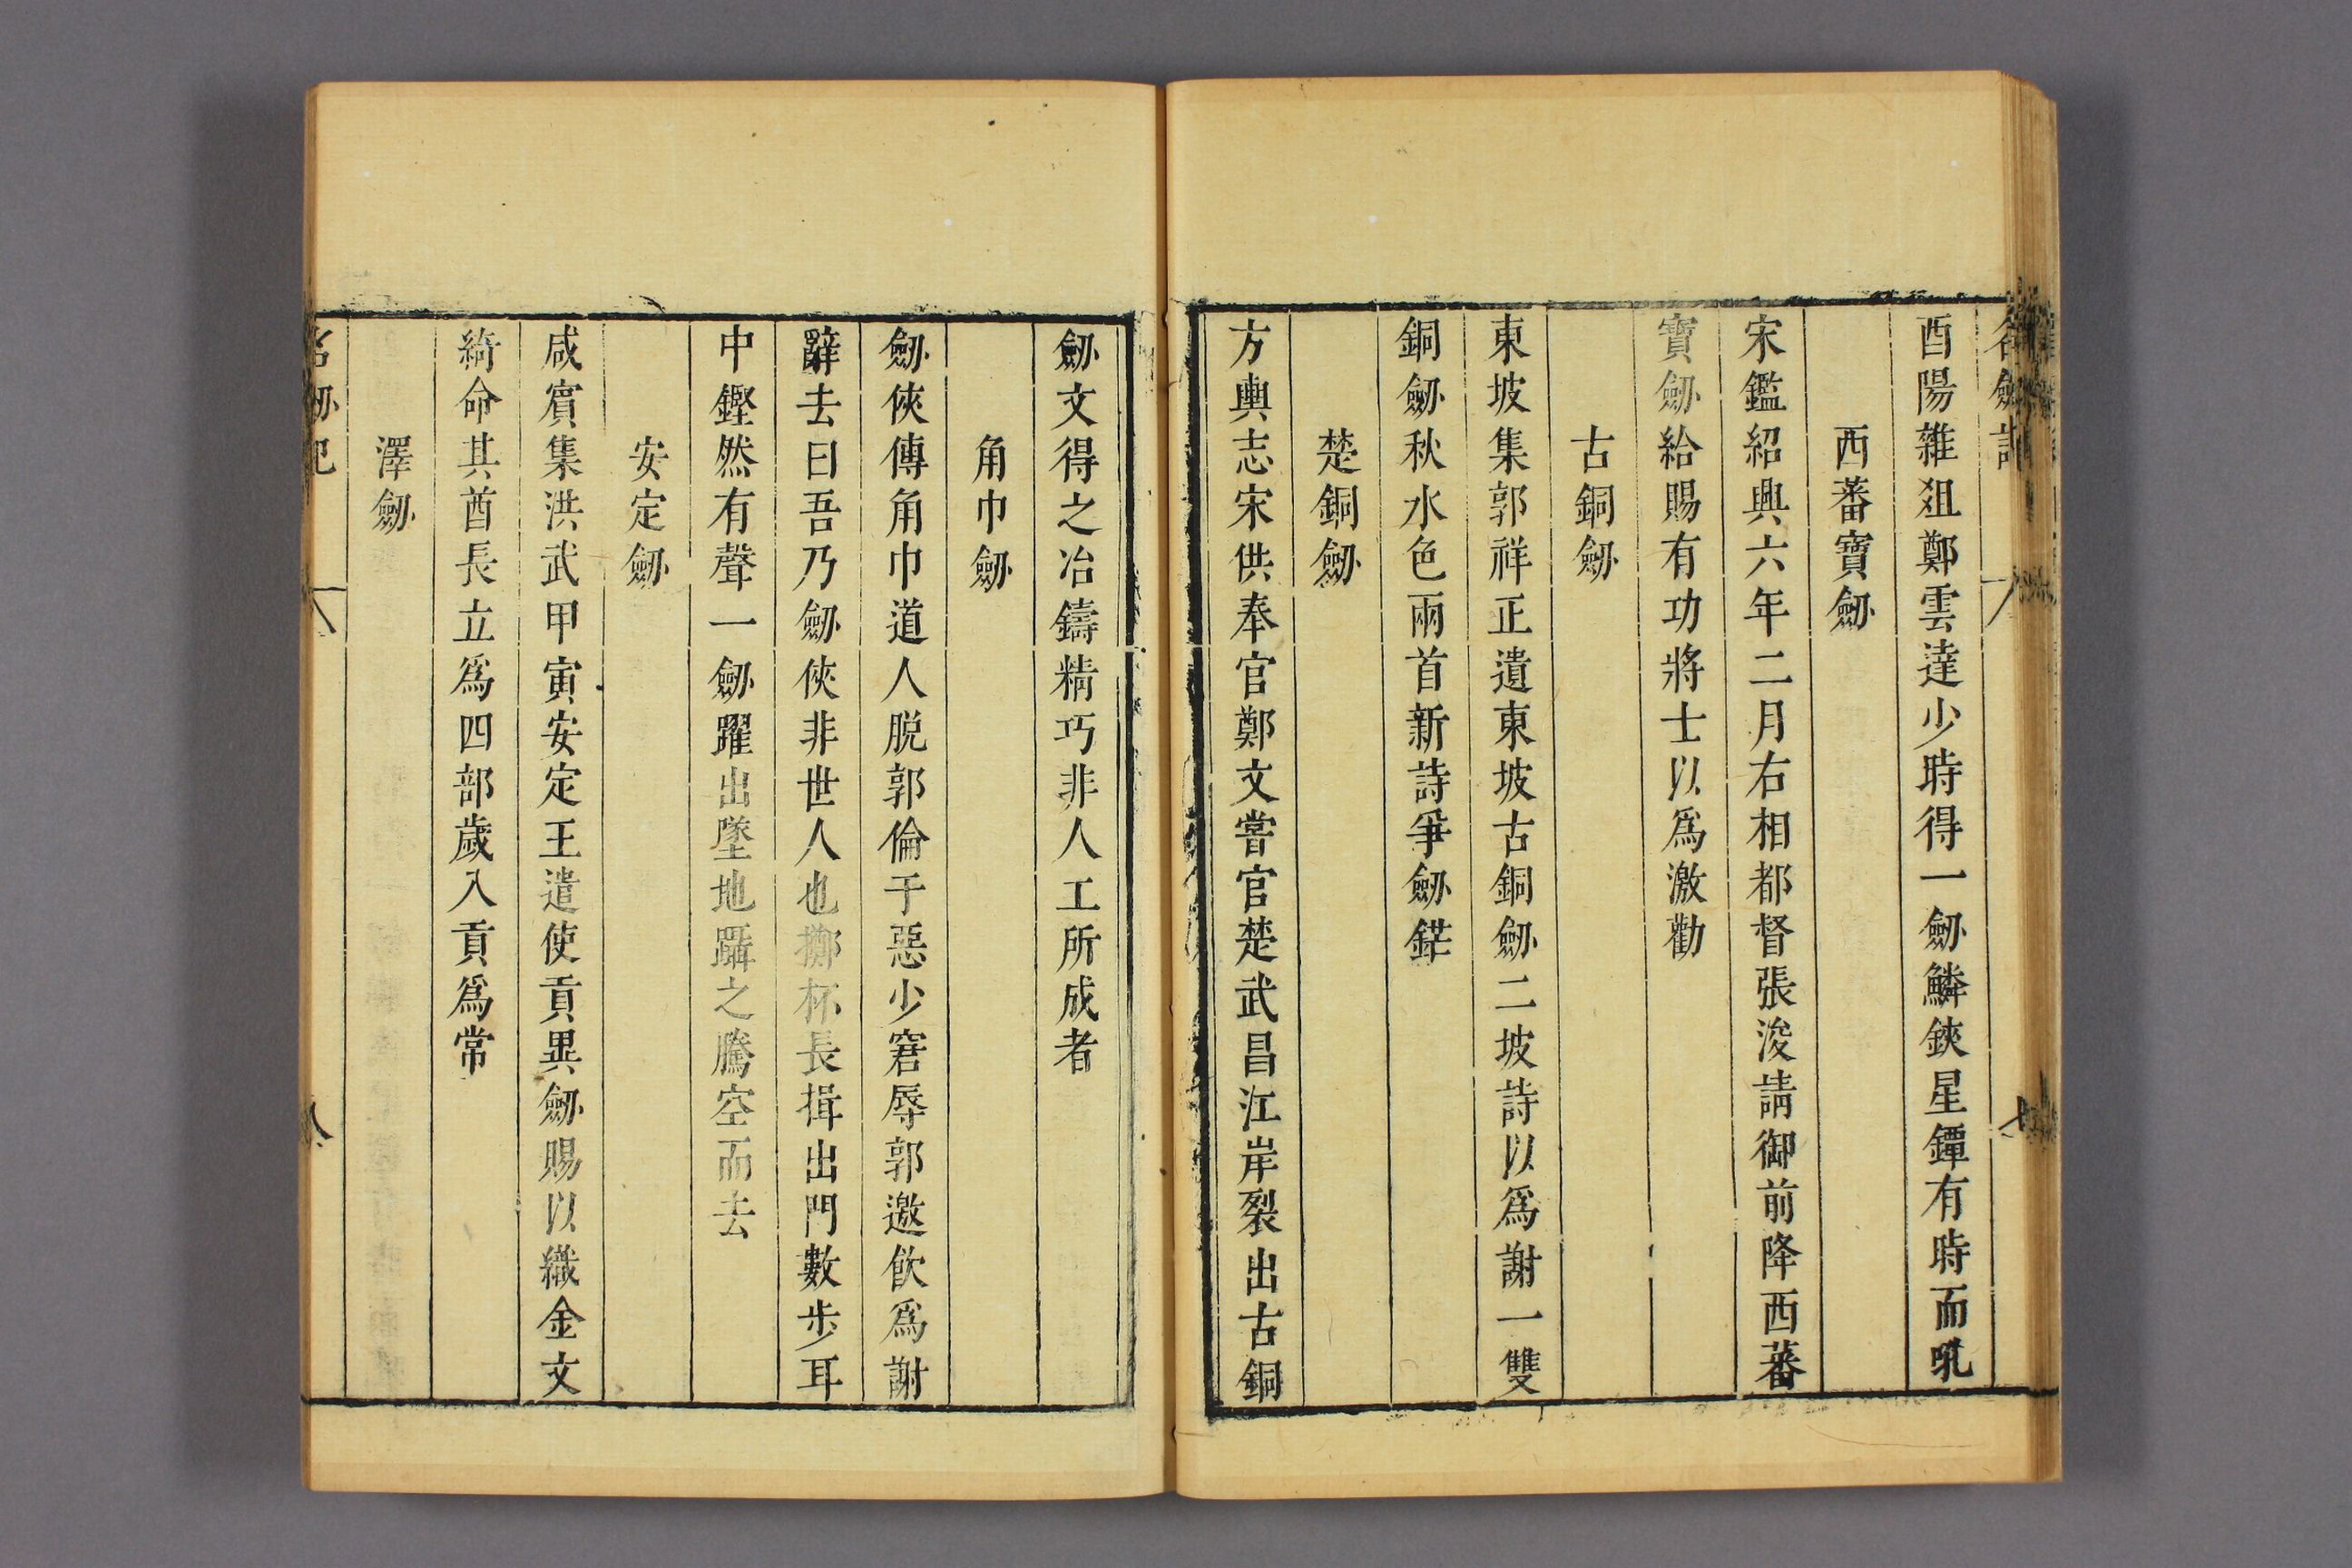 名劒記
七
酉陽雜俎鄭雲逹少時得一劒鱗鋏星鐔有時而吼
西蕃寶劒
宋鑑紹興六年二月右相都督張浚請御前降西蕃
寶劒給賜有功將士以爲激勸
古銅劒
東坡集郭祥正遺東坡古銅劒二坡詩以爲謝一雙
銅劒秋水色兩首新詩爭劒鋩
楚銅劒
方輿志宋供奉官鄭文嘗官楚武昌江岸裂出古銅
劒文得之冶鑄精巧非人工所成者
角巾劒
劒俠傳角巾道人脱郭倫于惡少窘辱郭邀飲爲謝
辭去曰吾乃劒俠非世人也擲杯長揖出門數步耳
中鏗然有聲一劒躍出墜地躡之騰空而去
安定劒
咸賓集洪武甲寅安定王遣使貢異劒賜以織金文
綺命其酋長立爲四部歲入貢爲常
澤劒
名劒記
八